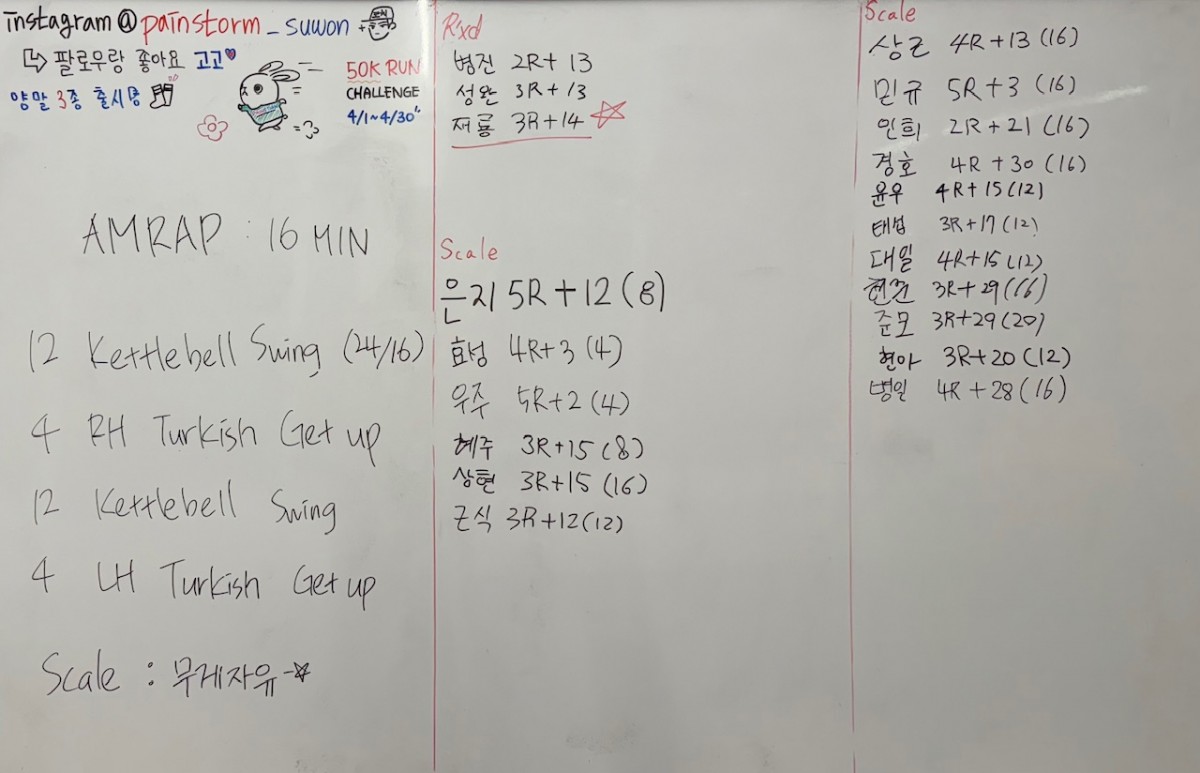 instagram@painstorm_suwon
팔로우랑 좋아요 고고
양말 3종 출시중
50K RUN
CHALLENGE
4/1~4/30
AMRAP : 16 MIN
12 Kettlebell Swing (24/16)
4 RH Turkish Get up
12 Kettlebell Swing
4 LH Turkish Get up
Scale : 무게자유
R'xd
병진 2R+ 13
성완 3R+13
재룡 3R+14
Scale
은지 5R+12(8)
효성 4R+3 (4)
우주 5R+2(4)
혜주 3R+15(8)
상현 3R+15(16)
근식 3R+12(12)
Scale
상근 4R+13(16)
민규 5R+3 (16)
민희 2R+21 (16)
경호 4R+30 (16)
윤우 4R+15(12)
태섭 3R+17(12)
대일 4R+15(12)
3R+29(16)
준모 3R+29(20)
현아 3R+20(12)
병일 4R+28(16)